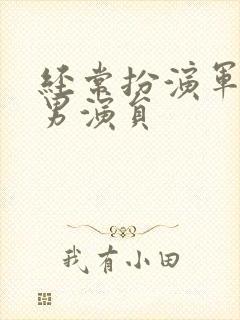 经常扮演軍
男演員
我有小田